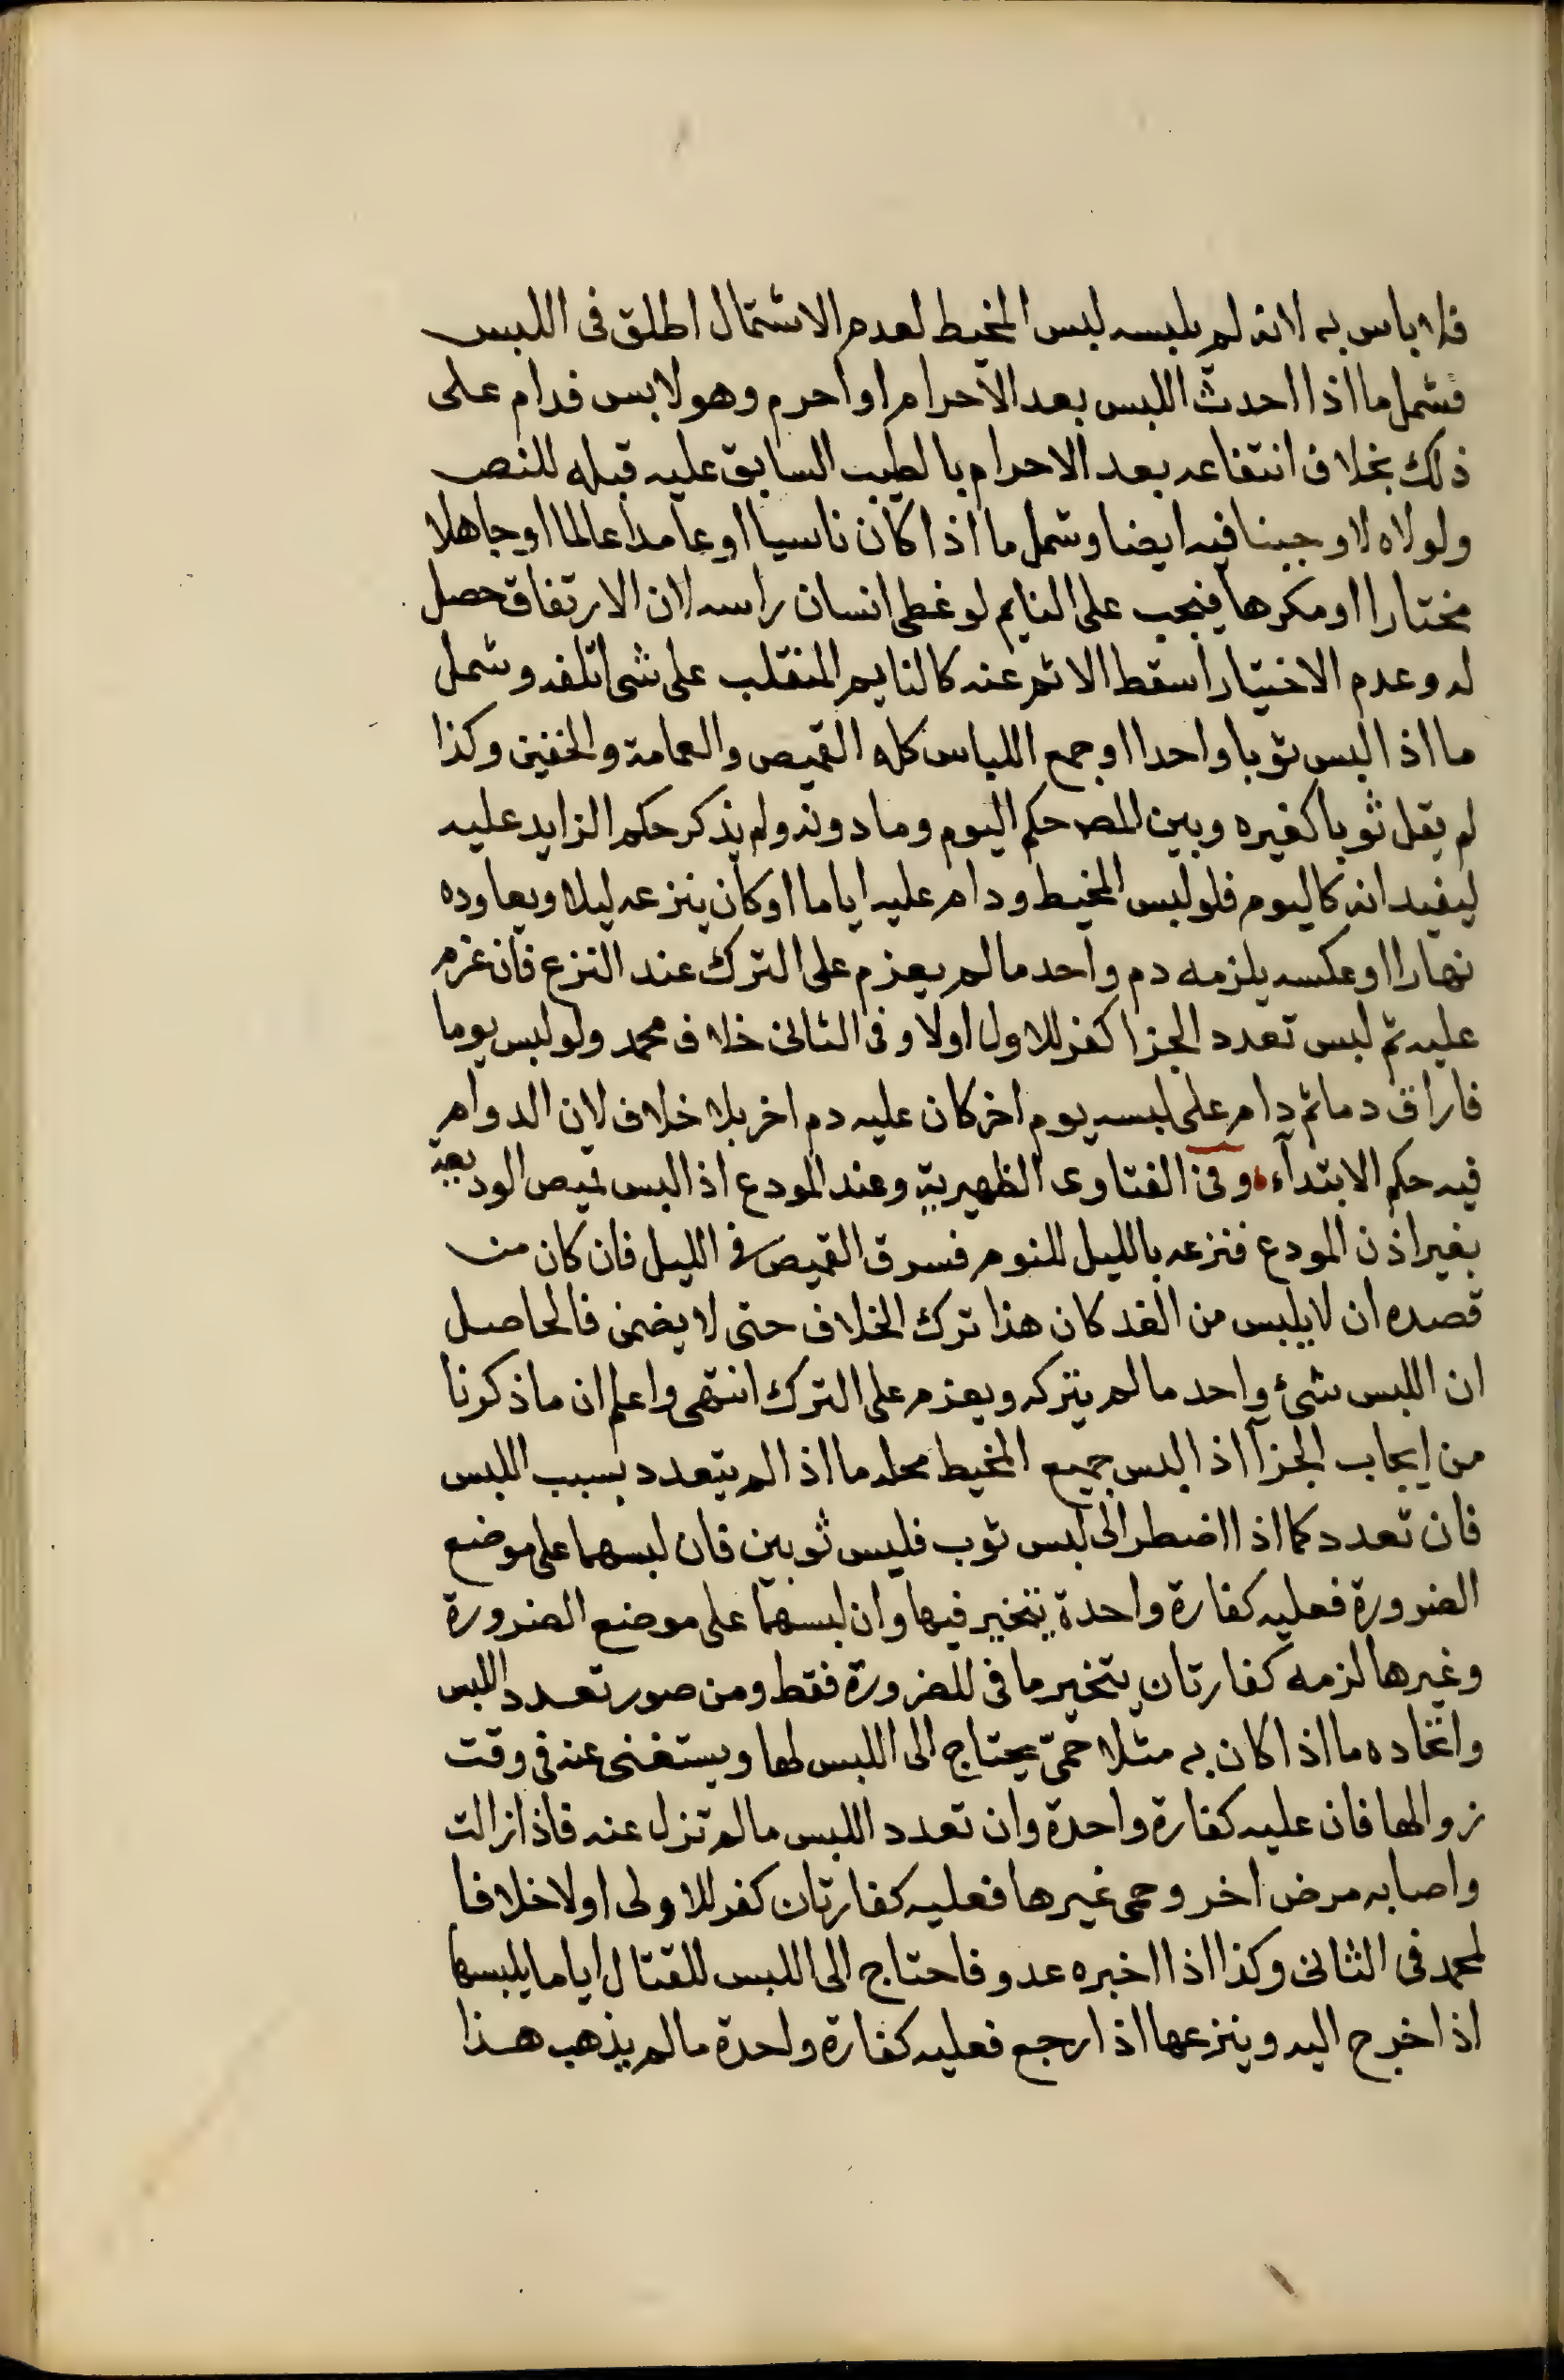 فلا باس به لانه لم يلبسه لبس المخيط لعدم الاشتمال اطلق فى اللبس
فشمل ما اذا احدث اللبس بعد الاحرام او احرم وهو لابس فدام على
ذلك بخلاف انتفاعه بعد الاحرام بالطيب السابق عليه قبله للنص
ولولاه لاوجبنا فيه ايضا وشمل ما اذا كان ناسيا او عامدا عالما او جاهلا
مختارا او مكرها فيجب على النايم لو غطى انسان راسه لان الارتفاق حصل
له وعدم الاختيار اسقط الاثم عنه كالنايم المنقلب على شى اتلفه وشمل
ما اذا لبس ثوبا واحدا او جمع اللباس كله القميص والعمامة والخفين وكذا
لم يقل ثوبا كغيره وبين المص حكم اليوم وما دونه ولم يذكر حكم الزايد عليه
ليفيد انه كاليوم فلو لبس المخيط ودام عليه اياما او كان ينزعه ليلا ويعاوده
نهارا او عكسه يلزمه دم واحد ما لم يعزم على الترك عند النزع فان عزم
عليه ثم لبس تعدد الجزا كفر للاول اولا وفى الثانى خلاف محمد ولو لبس يوما
فاراق دما ثم دام على لبسه يوم اخر كان عليه دم اخر بلا خلاف لان الدوام
فيه حكم الابتدآء وفى الفتاوى الظهيرية وعند المودع اذا لبس قميص الوديعة
بغير اذن المودع فنزعه بالليل للنوم فسرق القميص فى الليل فان كان من
قصده ان لا يلبس من الغد كان هذا ترك الخلاف حتى لا يضمن فالحاصل
ان اللبس شئ واحد ما لم يتركه ويعزم على الترك انتهى واعلم ان ما ذكرنا
من ايجاب الجزآ اذا لبس جميع المخيط محله ما اذا لم يتعدد بسبب اللبس
فان تعدد كما اذا اضطر الى لبس ثوب فلبس ثوبين فان لبسهما على موضع
الضرورة فعليه كفارة واحدة يتخير فيها وان لبسهما على موضع الضرورة
وغيرها لزمه كفارتان يتخير ما فى للضرورة فقط ومن صور تعدد اللبس
واتحاده ما اذا كان به مثلا حمّى يحتاج الى اللبس لها ويستغنى عنه فى وقت
زوالها فان عليه كفارة واحدة وان تعدد اللبس ما لم تزل عنه فاذا زالت
واصابه مرض اخر وحمى غيرها فعليه كفارتان كفر للاولى اولا خلافا
لمحمد فى الثانى وكذا اذا اخبره عدو فاحتاج الى اللبس للقتال اياما يلبسها
اذا خرج اليه وينزعها اذا رجع فعليه كفارة واحدة ما لم يذهب هذا